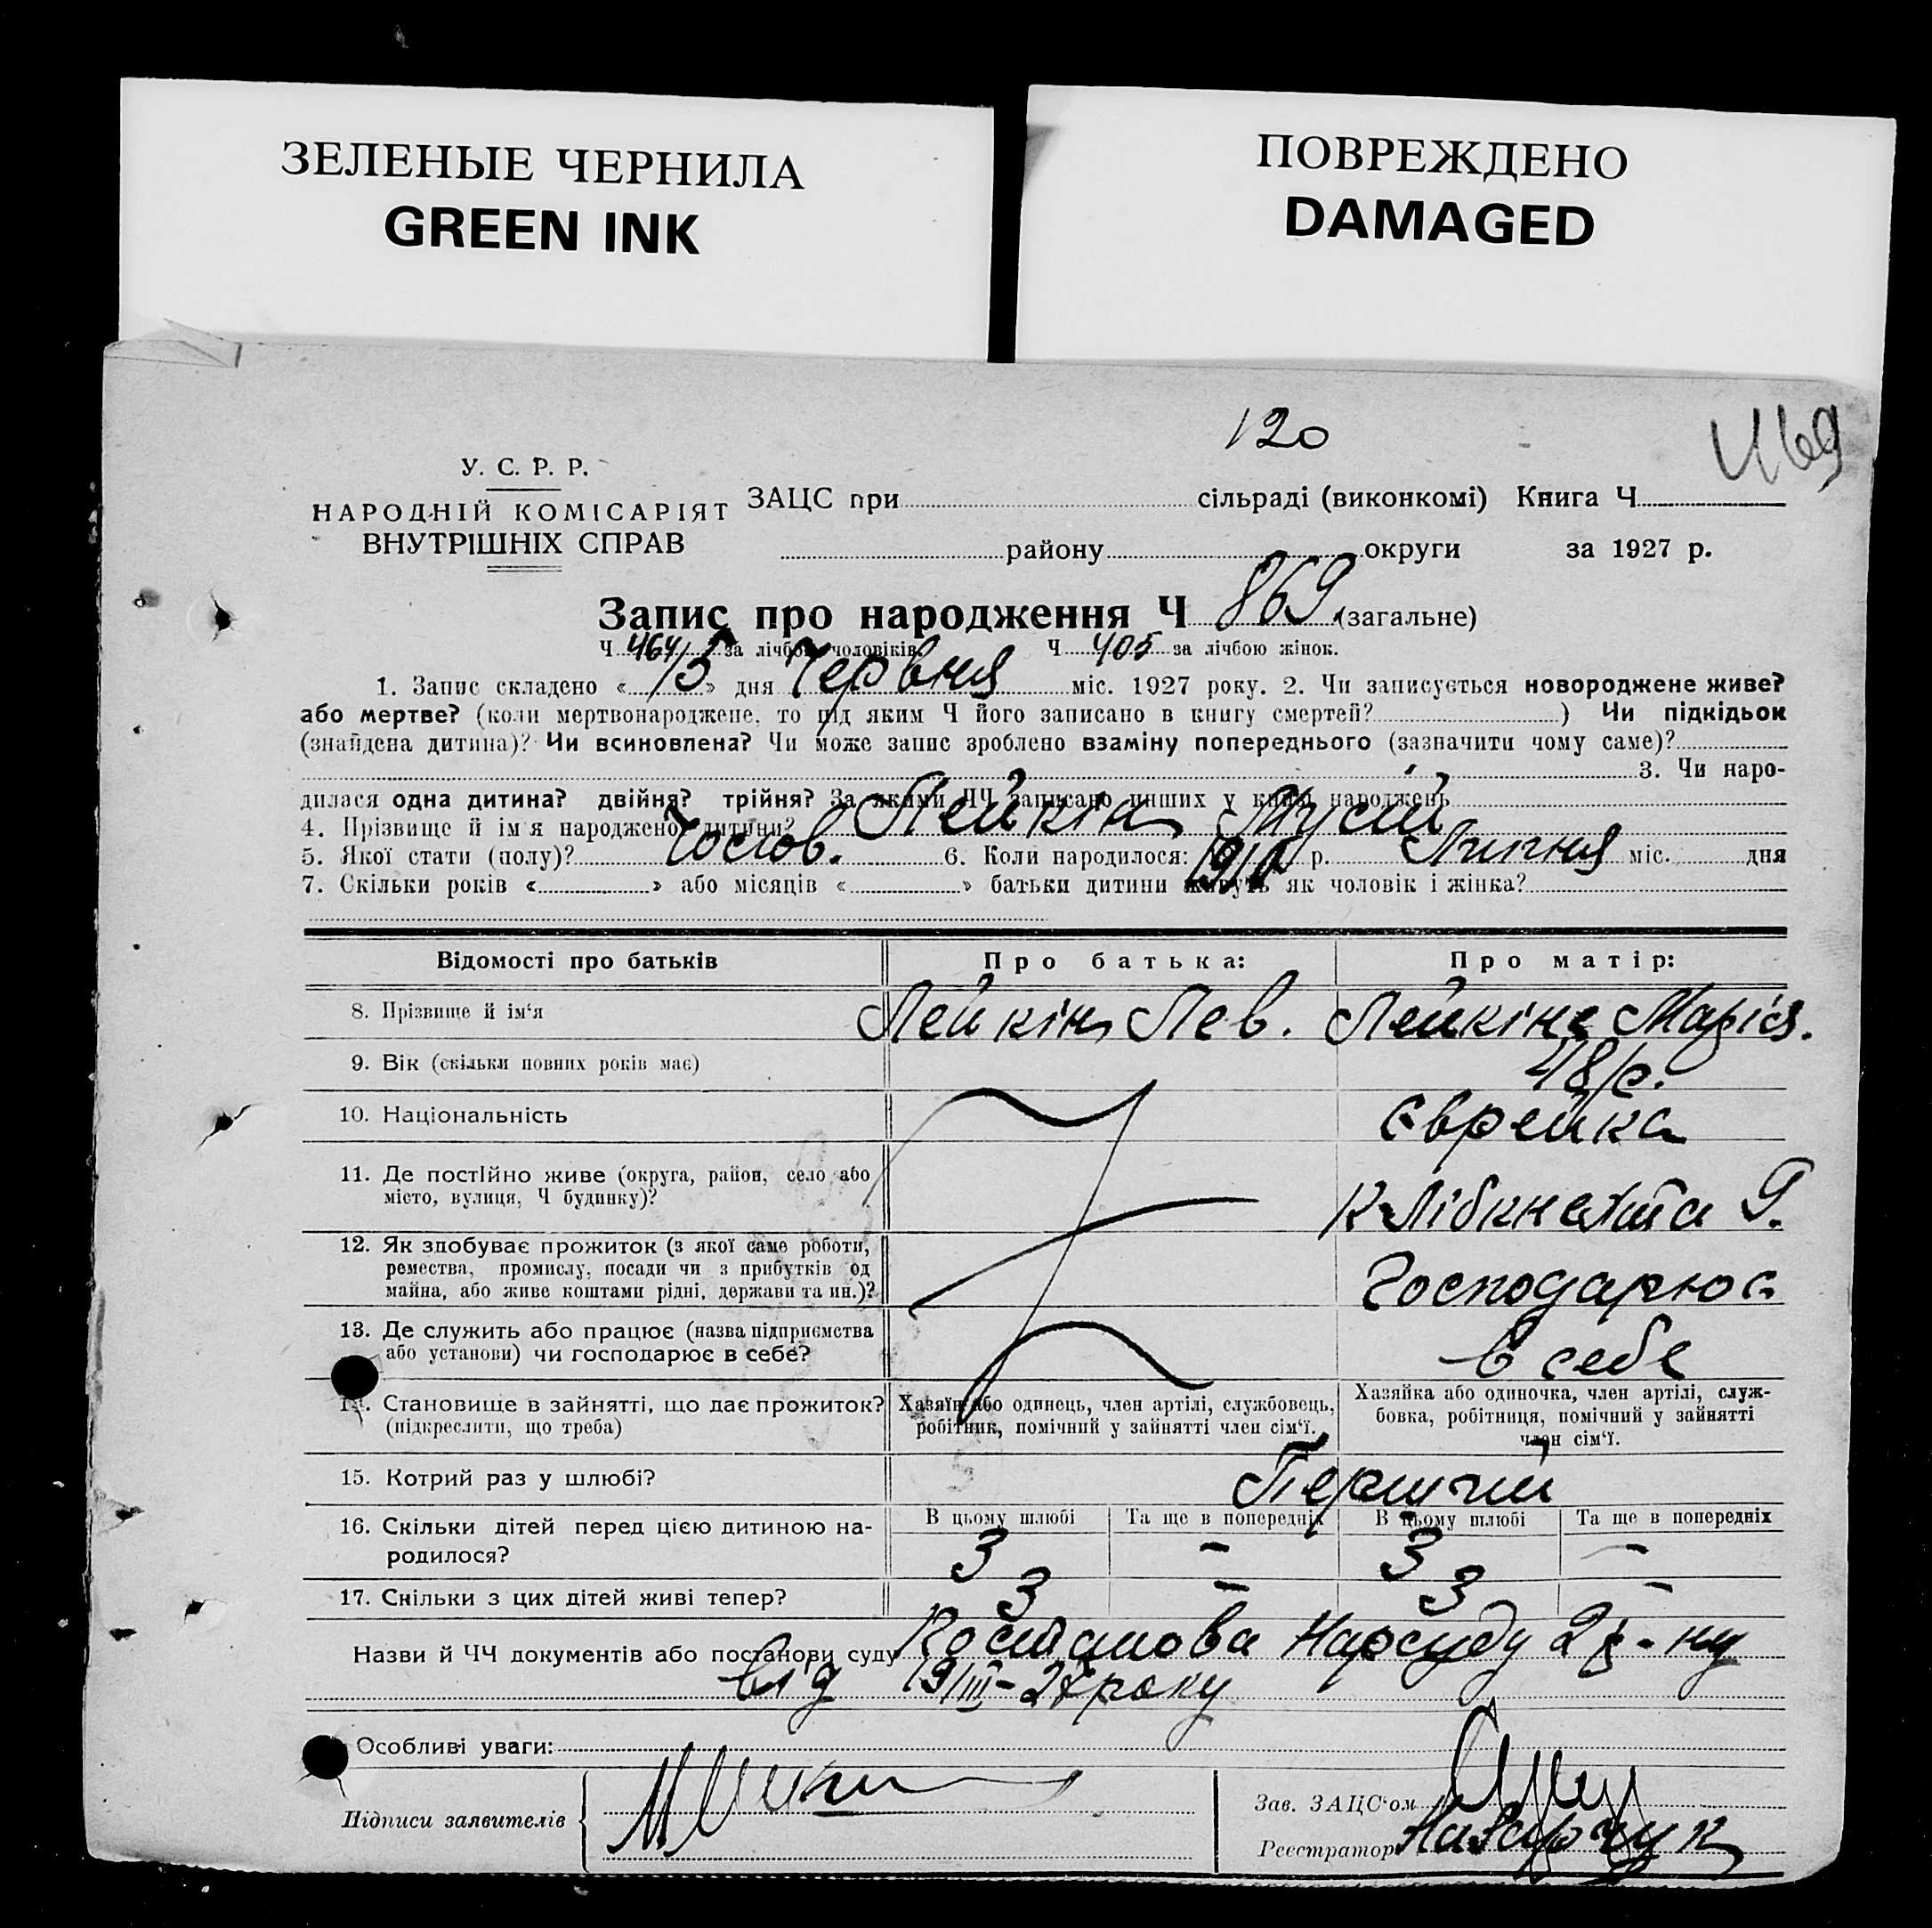 ЗЕЛЕНЫЕ ЧЕРНИЛА
GREEN INK
ПОВРЕЖДЕНО
DAMAGED
120
469
У. С. Р. Р.
НАРОДНІЙ КОМІСАРІЯТ
ВНУТРІШНІХ СПРАВ
ЗАЦС при сільраді (виконкомі) Книга Ч
району округи за 1927 р.
Запис про народження Ч 869 (загальне)
Ч 464 за лічбою чоловіків. Ч 405 за лічбою жінок.
1. Запис складено « 15 » дня Червня міс. 1927 року. 2. Чи записується новороджене живе?
або мертве? (коли мертвонароджене, то під яким Ч його записано в книгу смертей? ) Чи підкідьок
(знайдена дитина)? Чи всиновлена? Чи може запис зроблено взаміну попереднього (зазначити чому саме)?
3. Чи наро-
дилася одна дитина? двійня? трійня? За якими ЧЧ записано инших у книзі народжень
4. Прізвище й ім'я народженої дитини? Лейкін Мусій
5. Якої стати (полу)? Чолов. 6. Коли народилося: р. Липня міс. дня
7. Скільки років « » або місяців « » батьки дитини живуть як чоловік і жінка?
Відомості про батьків Про батька: Про матір:
8. Прізвище й ім'я Лейкін Лев. Лейкіна Марія.
9. Вік (скільки повних років має) 48 р.
10. Національність єврейка
11. Де постійно живе (округа, район, село або
місто, вулиця, Ч будинку)? К Лібкнехта 9.
12. Як здобуває прожиток (з якої саме роботи,
ремества, промислу, посади чи з прибутків од
майна, або живе коштами рідні, держави та ин.)? Господарює
13. Де служить або працює (назва підприємства
або установи) чи господарює в себе? в себе
14. Становище в зайнятті, що дає прожиток?
(підкреслити, що треба)
Хазяїн або одинець, член артілі, службовець,
робітник, помічний у зайнятті член сім'ї.
Хазяйка або одиночка, член артілі, служ-
бовка, робітниця, помічний у зайнятті
член сім'ї.
15. Котрий раз у шлюбі? Перший
16. Скільки дітей перед цією дитиною на-
родилося?
В цьому шлюбі Та ще в попередніх В цьому шлюбі Та ще в попередніх
3 – 3 –
17. Скільки з цих дітей живі тепер? 3 – 3 –
Назви й ЧЧ документів або постанови суду Постанова Нарсуду 2 р-ну
від 19/III-27 року
Особливі уваги:
Підписи заявителів
Зав. ЗАЦС'ом
Реєстратор Назарчук